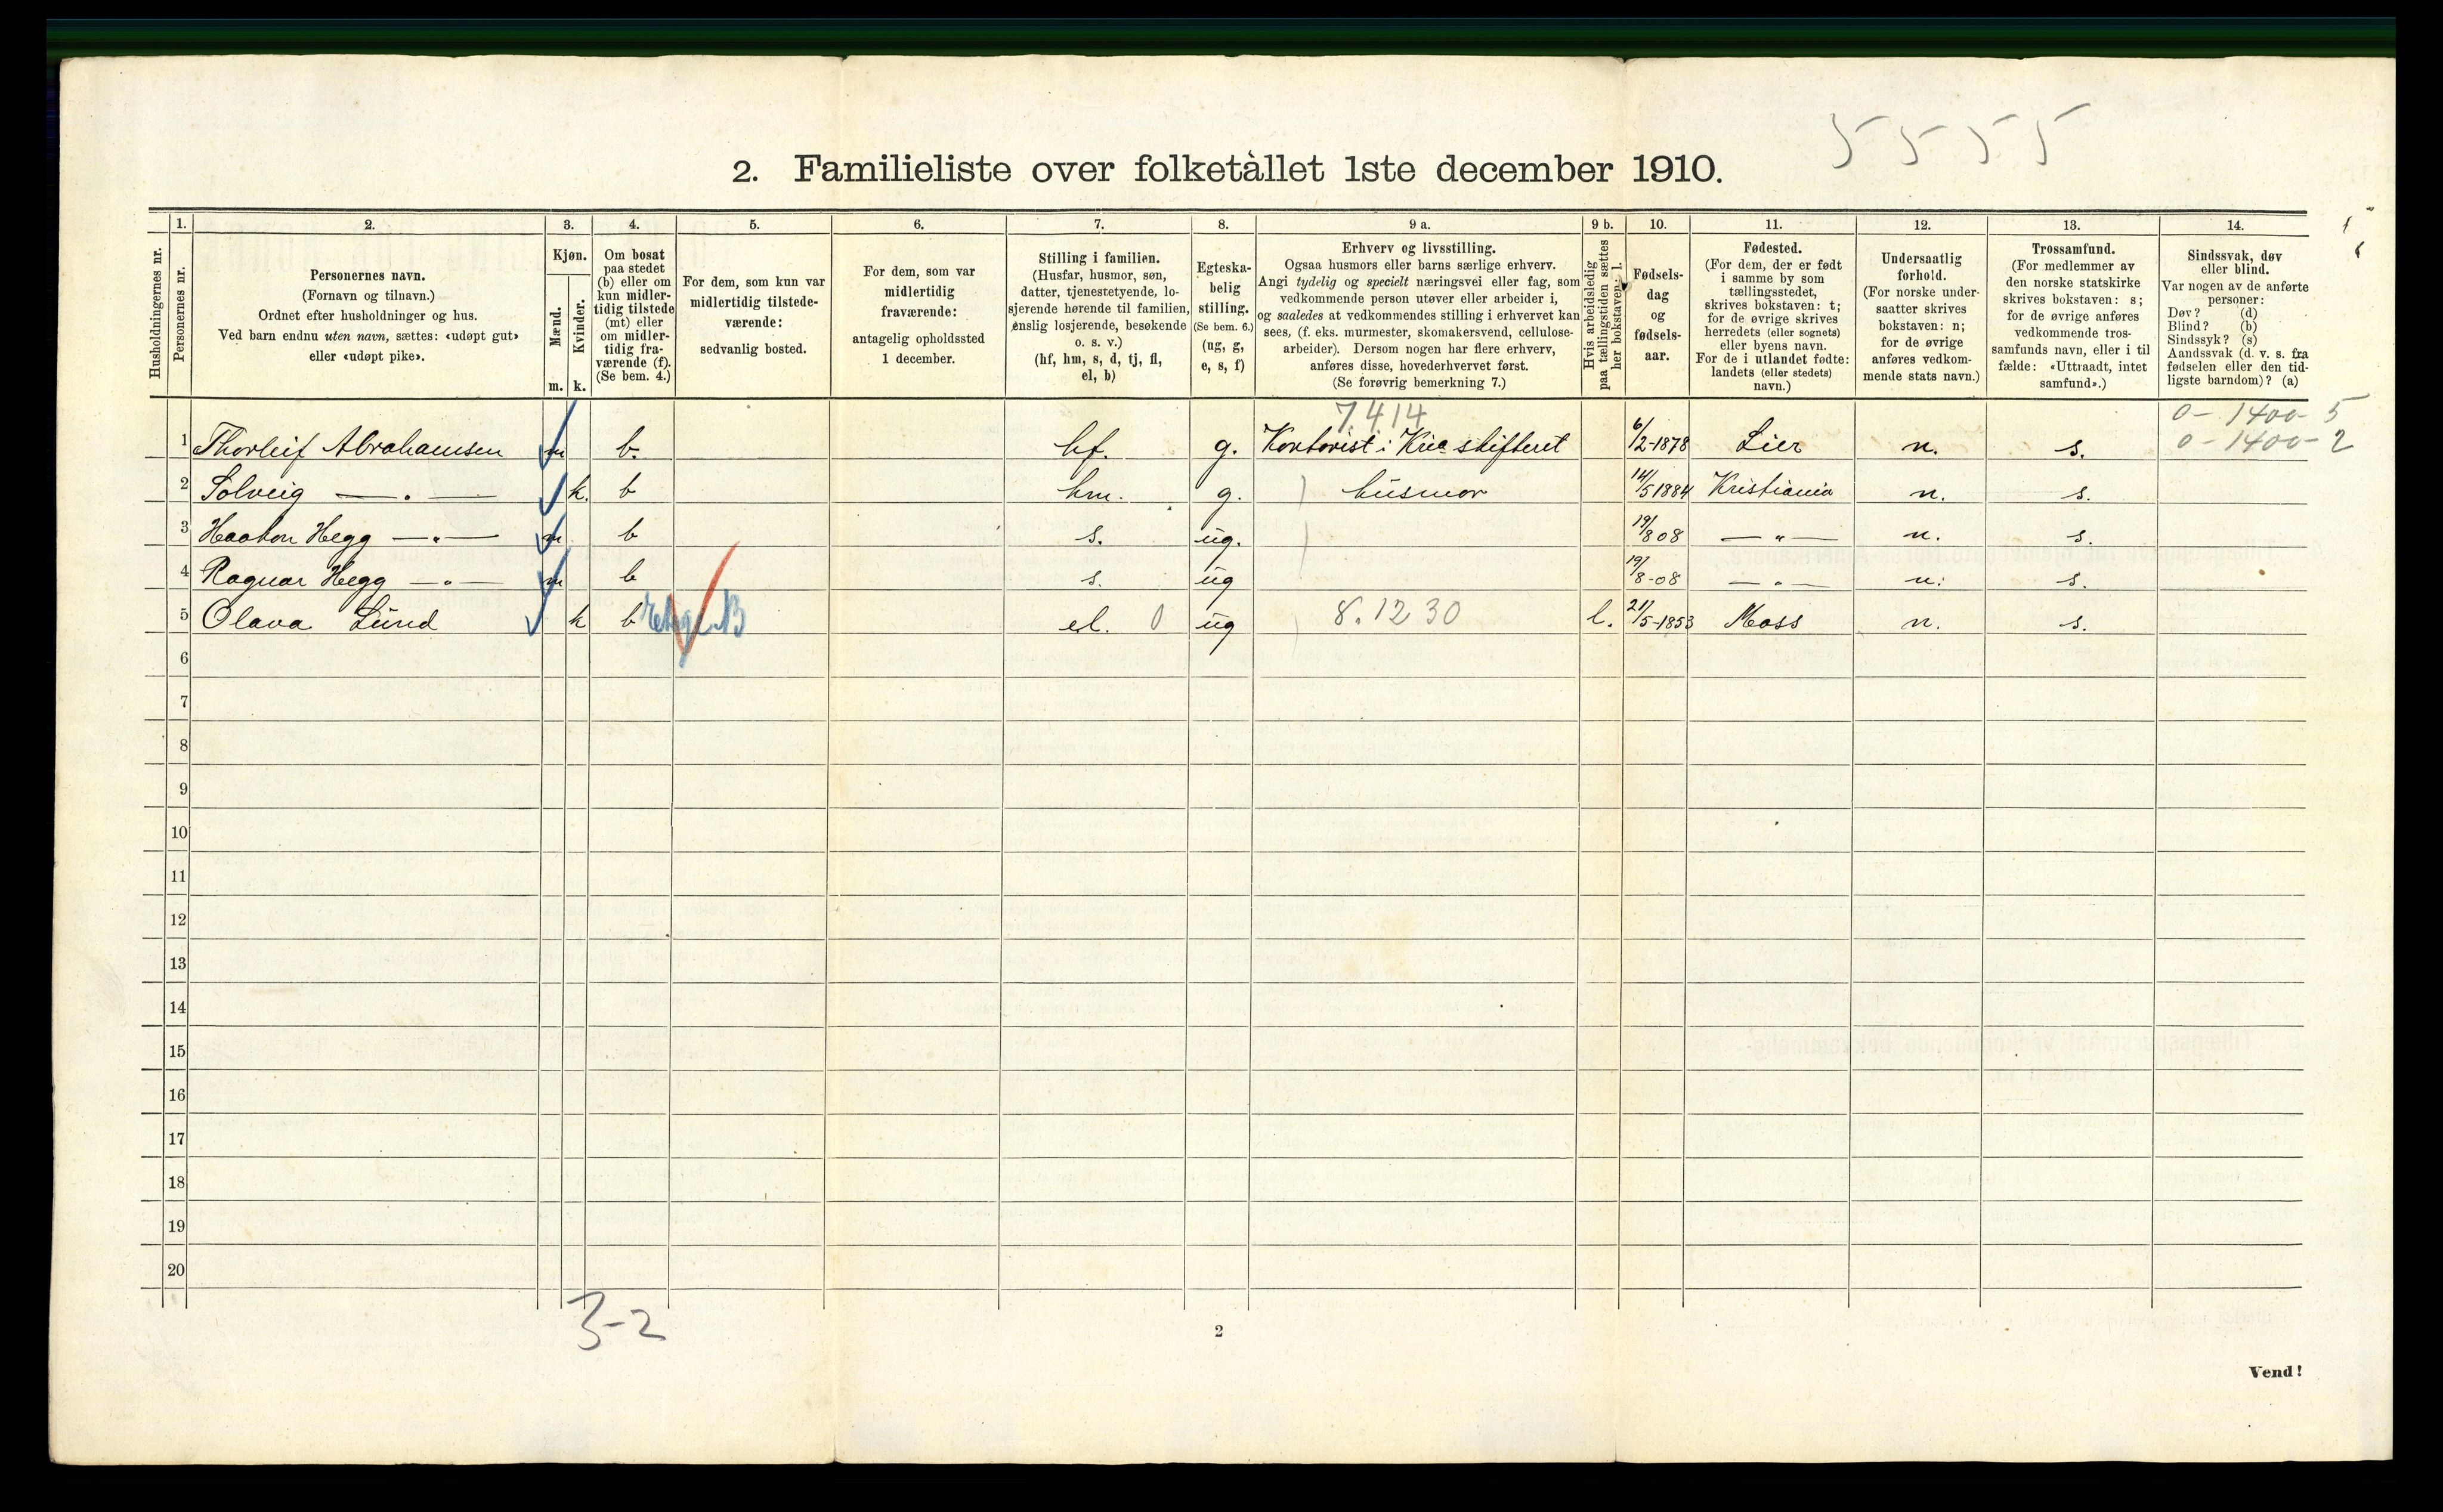 5 5 5 5
2. Familieliste over folketallet 1ste december 1910.
Husholdningernes nr.
1. Personernes nr.
2. Personernes navn.
(Fornavn og tilnavn.)
Ordnet efter husholdninger og hus.
Ved barn endnu uten navn, sættes: «udøpt gut»
eller «udøpt pike».
3. Kjøn.
Mænd. m.
Kvinder. k.
4. Om bosat
paa stedet
(b) eller om
kun midler-
tidig tilstede
(mt) eller
om midler-
tidig fra-
værende (f).
(Se bem. 4.)
5. For dem, som kun var
midlertidig tilstede-
værende:
sedvanlig bosted.
6. For dem, som var
midlertidig
fraværende:
antagelig opholdssted
1 december.
7. Stilling i familien.
(Husfar, husmor, søn,
datter, tjenestetyende, lo-
sjerende hørende til familien,
enslig losjerende, besøkende
o. s. v.)
(hf, hm, s, d, tj, fl,
el, b)
8. Egteska-
belig
stilling.
(Se bem. 6.)
(ug, g,
e, s, f)
9 a. Erhverv og livsstilling.
Ogsaa husmors eller barns særlige erhverv.
Angi tydelig og specielt næringsvei eller fag, som
vedkommende person utøver eller arbeider i,
og saaledes at vedkommendes stilling i erhvervet kan
sees, (f. eks. murmester, skomakersvend, cellulose-
arbeider). Dersom nogen har flere erhverv,
anføres disse, hovederhvervet først.
(Se forøvrig bemerkning 7.)
9 b. Hvis arbeidsledig
paa tællingstiden sættes
her bokstaven: l.
10. Fødsels-
dag
og
fødsels-
aar.
11. Fødested.
(For dem, der er født
i samme by som
tællingsstedet,
skrives bokstaven: t;
for de øvrige skrives
herredets (eller sognets)
eller byens navn.
For de i utlandet fødte:
landets (eller stedets)
navn.)
12. Undersaatlig
forhold.
(For norske under-
saatter skrives
bokstaven: n;
for de øvrige
anføres vedkom-
mende stats navn.)
13. Trossamfund.
(For medlemmer av
den norske statskirke
skrives bokstaven: s;
for de øvrige anføres
vedkommende tros-
samfunds navn, eller i til
fælde: «Uttraadt, intet
samfund».)
14. Sindssvak, døv
eller blind.
Var nogen av de anførte
personer:
Døv? (d)
Blind? (b)
Sindssyk? (s)
Aandssvak (d. v. s. fra
fødselen eller den tid-
ligste barndom)? (a)
7.4.14 0 - 1400 - 5
1 Thorleif Abrahamsen m b. hf. g. Kontorist i Kria stiftert 6/2-1878 Lier n. s. 0 - 1400 - 2
2 Solveig — " — k. b hm. g. husmor 14/5 1884 Kristiania n. s.
3 Haakon Hegg — " — m b s. ug. 19/8 08 — " — n. s.
4 Ragnar Hegg — " — m b s. ug 19/8-08 — " — n. s.
5 Olava Lund k b el. 0 ug 8.12 30 l. 21/5-1853 Moss n. s.
6
7
8
9
10
11
12
13
14
15
16
17
18
19
20
3-2
2
Vend!